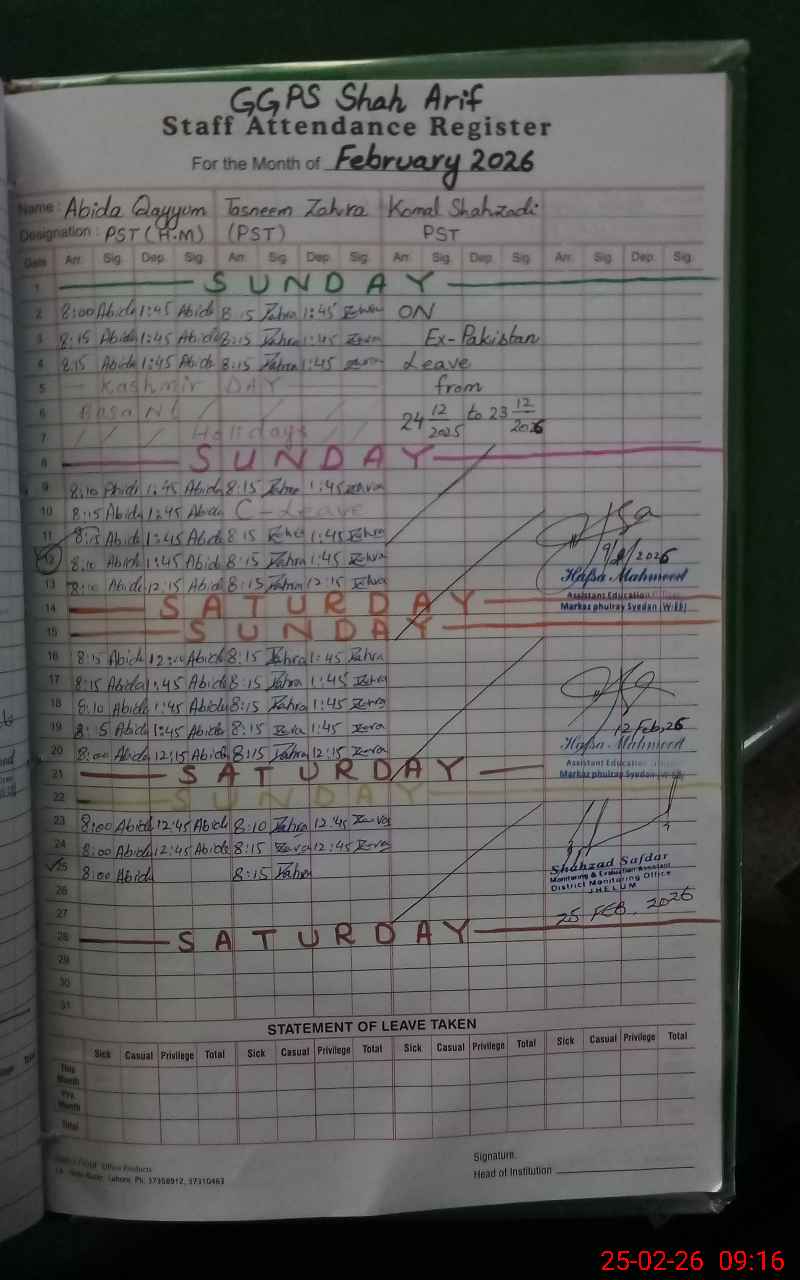 GGPS Shah Arif
Staff Attendance Register
For the Month of February 2026
Name : Abida Qayyum Tasneem Zahra Komal Shahzadi
Designation : PST (H.M) (PST) PST
Date Arr. Sig. Dep. Sig. Arr. Sig. Dep. Sig. Arr. Sig. Dep. Sig. Arr. Sig. Dep. Sig.
1 SUNDAY
2 8:00 Abida 1:45 Abida 8:15 Zahra 1:45 Zahra ON
3 8:15 Abida 1:45 Abida 8:15 Zahra 1:45 Zahra Ex-Pakistan
4 8:15 Abida 1:45 Abida 8:15 Zahra 1:45 Zahra Leave
5 Kashmir DAY from
6 24 12/2025 to 23 12/2026
7 Holidays
8 SUNDAY
9 8:10 Abida 1:45 Abida 8:15 Zahra 1:45 Zahra
10 8:15 Abida 1:45 Abida C-Leave
11 8:15 Abida 1:45 Abida 8:15 Zahra 1:45 Zahra
12 8:10 Abida 1:45 Abida 8:15 Zahra 1:45 Zahra
13 Abida 12:15 Abida 8:15 Zahra 12:15 Zahra
Hafsa Mahmood
Assistant Education
Markaz phulray Syedan (W-EE)
14 SATURDAY
15 SUNDAY
16 8:15 Abida Abida 8:15 Zahra 1:45 Zahra
17 8:15 Abida 1:45 Abida 8:15 Zahra 1:45 Zahra
18 8:10 Abida 1:45 Abida 8:15 Zahra 1:45 Zahra
19 Abida 1:45 Abida 8:15 Zahra 1:45 Zahra
20 8:00 Abida 12:15 Abida 8:15 Zahra 12:15 Zahra
12 Feb, 26
Hafsa Mahmood
Assistant Education
Markaz phulray Syedan (W-EE)
21 SATURDAY
22 SUNDAY
23 8:00 Abida 12:45 Abida 8:10 Zahra 12:45 Zahra
24 8:00 Abida 12:45 Abida 8:15 Zahra 12:45 Zahra
25 8:00 Abida 8:15 Zahra
Shahzad Safdar
Monitoring & Evaluation Assistant
District Monitoring Office
JHELUM
25 FEB, 2026
26
27
28 SATURDAY
29
30
31
STATEMENT OF LEAVE TAKEN
Sick Casual Privilege Total Sick Casual Privilege Total Sick Casual Privilege Total Sick Casual Privilege Total
This Month
Prv. Month
Total
Signature.
Head of Institution
Office Products
Lahore. Ph: 37358912, 37310463
25-02-26 09:16